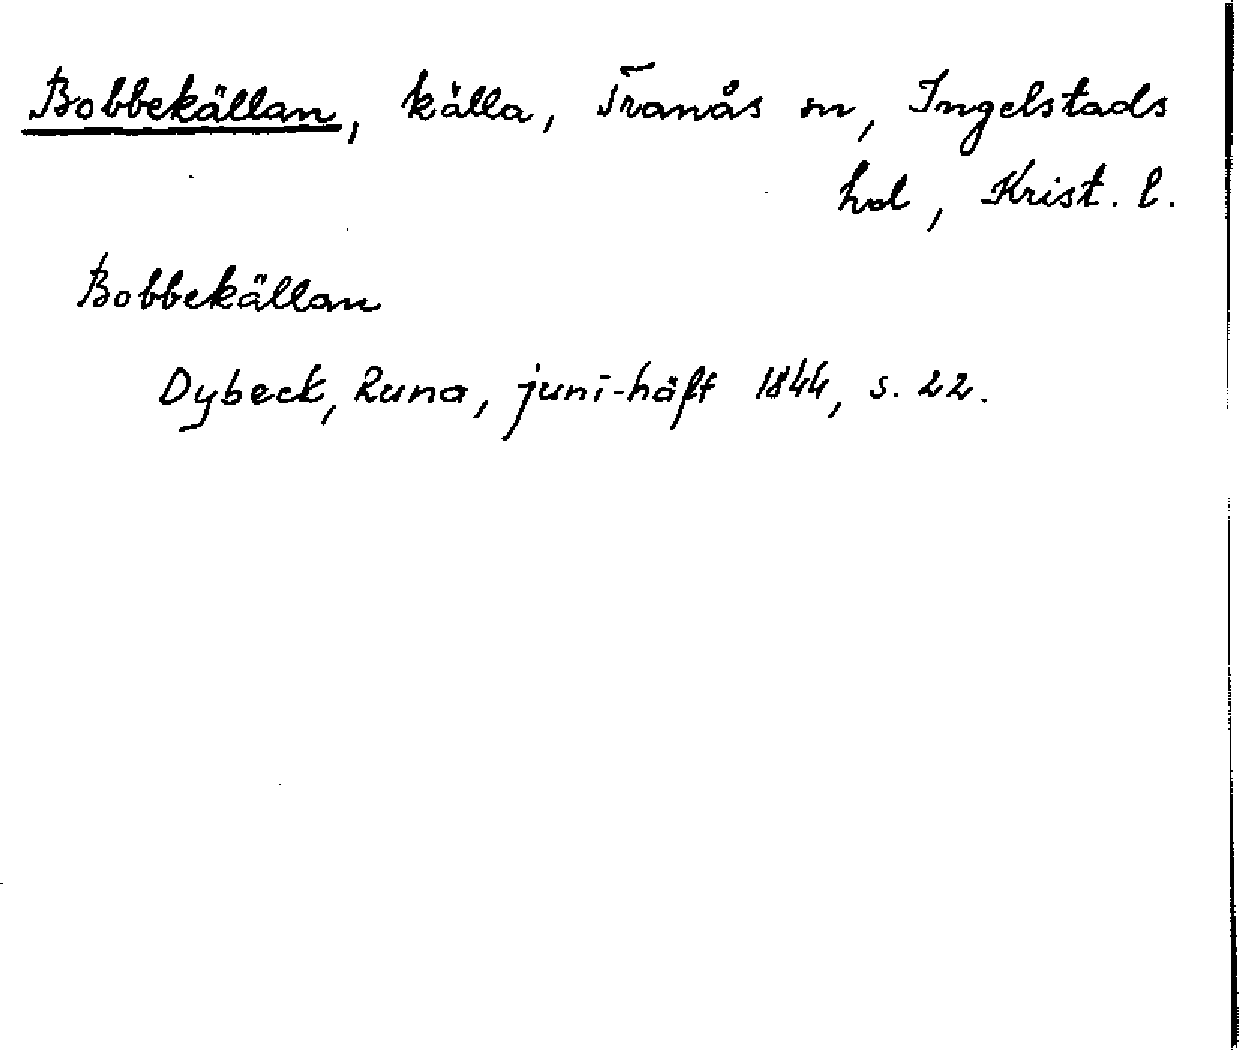 Bobbekällan, källa, Tranås sn, Ingelstads
hd, Krist. l.
Bobbekällan
Dybeck, Runa, juni-häft 1844, s. 22.